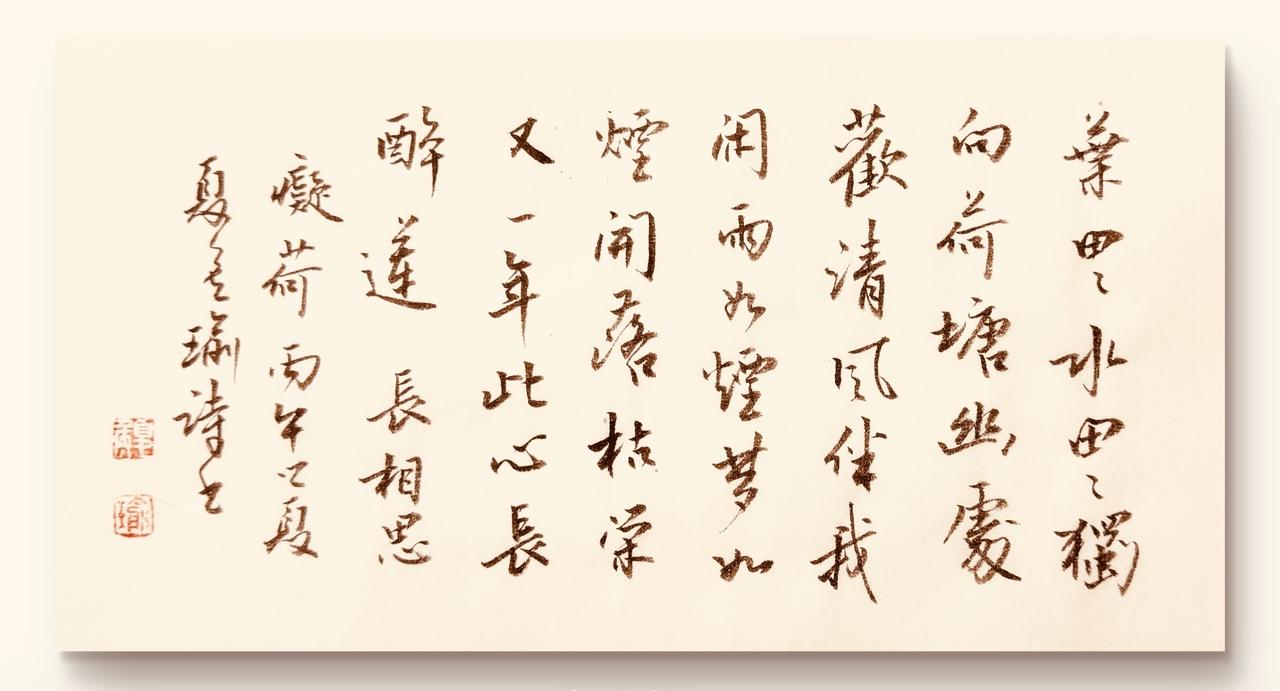 葉田〻水田〻獨
向荷塘幽處
歡清風伴我
閑雨如煙夢如
煙開落枯榮
又一年此心長
醉蓮 長相思
癡荷 丙午之夏
夏瑜詩書